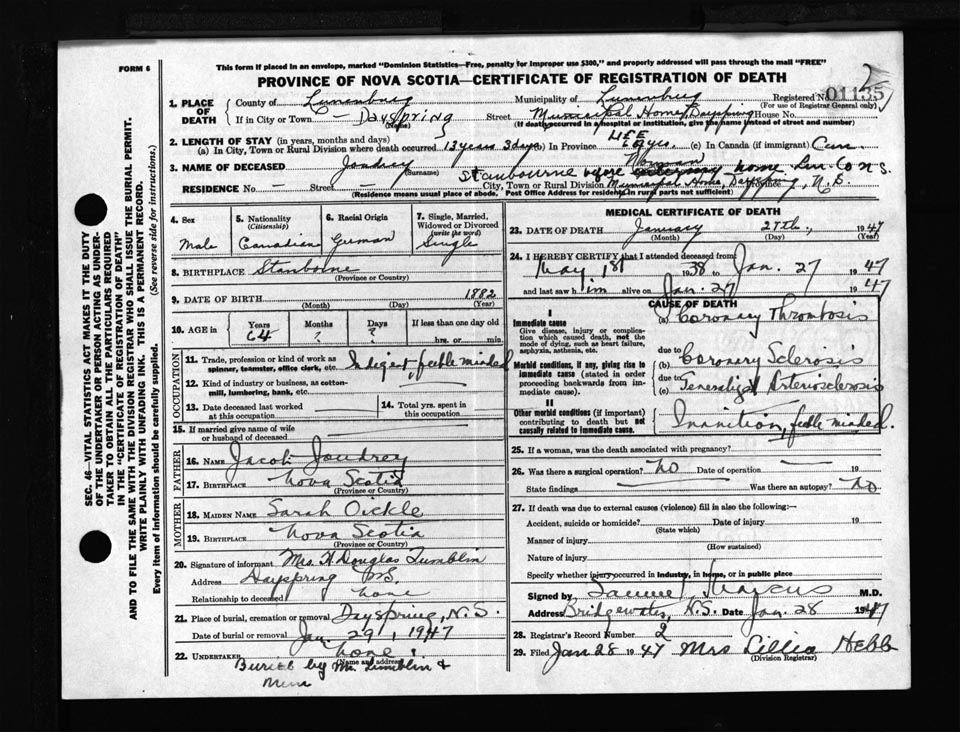 FORM 6
This form if placed in an envelope, marked "Dominion Statistics—Free, penalty for improper use $300," and properly addressed will pass through the mail "FREE"
PROVINCE OF NOVA SCOTIA—CERTIFICATE OF REGISTRATION OF DEATH
1. PLACE OF DEATH
County of Lunenburg Municipality of Lunenburg Registered No. 01135
(For use of Registrar General only)
If in City or Town — DaySpring Street Municipal Home, Dayspring House No.
(Name) (If death occurred in a hospital or institution, give the name instead of street and number)
2. LENGTH OF STAY (in years, months and days)
(a) In City, Town or Rural Division where death occurred 13 years 3 days (b) In Province LIFE yrs. (c) In Canada (if immigrant)
3. NAME OF DECEASED Joudrey Norman
(Surname)
Stanbourne before home Lun. Co N.S.
RESIDENCE No. — Street — City, Town or Rural Division Municipal Home, Dayspring, Province N.S.
(Residence means usual place of abode. Post Office Address for residents in rural parts not sufficient)
4. Sex Male
5. Nationality (Citizenship) Canadian
6. Racial Origin German
7. Single, Married, Widowed or Divorced (write the word) Single
8. BIRTHPLACE Stanborne
(Province or Country)
9. DATE OF BIRTH 1882
(Month) (Day) (Year)
10. AGE in Years 64 Months ? Days ? If less than one day old
hrs. or min.
OCCUPATION
11. Trade, profession or kind of work as spinner, teamster, office clerk, etc. Indigent, feeble minded
12. Kind of industry or business, as cotton-mill, lumbering, bank, etc.
13. Date deceased last worked at this occupation
14. Total yrs. spent in this occupation
15. If married give name of wife or husband of deceased
FATHER
16. NAME Jacob Joudrey
17. BIRTHPLACE Nova Scotia
(Province or Country)
MOTHER
18. MAIDEN NAME Sarah Oickle
19. BIRTHPLACE Nova Scotia
(Province or Country)
20. Signature of informant Mrs. H Douglas Tumblin
Address Dayspring N.S.
Relationship to deceased none
21. Place of burial, cremation or removal DaySpring, N.S.
Date of burial or removal Jan. 29, 1947
22. UNDERTAKER none.
(Name and address)
Buried by Mr. Tumblin &
Men
MEDICAL CERTIFICATE OF DEATH
23. DATE OF DEATH January 27th, 1947
(Month) (Day) (Year)
24. I HEREBY CERTIFY that I attended deceased from
May 1st 1938 to Jan. 27 1947
and last saw him alive on Jan. 27 1947
CAUSE OF DEATH
I
Immediate cause
Give disease, injury or complication which caused death, not the mode of dying, such as heart failure, asphyxia, asthenia, etc.
(a) Coronary Thrombosis
due to
Morbid conditions, if any, giving rise to immediate cause (stated in order proceeding backwards from immediate cause).
(b) Coronary Sclerosis
due to
(c) Generalized Arteriosclerosis
II
Other morbid conditions (if important) contributing to death but not causally related to immediate cause.
Inanition, feeble minded.
25. If a woman, was the death associated with pregnancy?
26. Was there a surgical operation? no Date of operation — 19
State findings Was there an autopsy? no
27. If death was due to external causes (violence) fill in also the following:—
Accident, suicide or homicide? Date of injury 19
(State which)
Manner of injury
(How sustained)
Nature of injury
Specify whether injury occurred in industry, in home, or in public place
Signed by Samuel Marcus M.D.
Address Bridgewater, N.S. Date Jan. 28 1947
28. Registrar's Record Number 2
29. Filed Jan 28 1947 Mrs Lillia Hebb
(Division Registrar)
SEC. 46—VITAL STATISTICS ACT MAKES IT THE DUTY
OF THE UNDERTAKER OR PERSON ACTING AS UNDER-
TAKER TO OBTAIN ALL THE PARTICULARS REQUIRED
IN THE "CERTIFICATE OF REGISTRATION OF DEATH"
AND TO FILE THE SAME WITH THE DIVISION REGISTRAR WHO SHALL ISSUE THE BURIAL PERMIT.
WRITE PLAINLY WITH UNFADING INK. THIS IS A PERMANENT RECORD.
Every item of information should be carefully supplied. (See reverse side for instructions.)